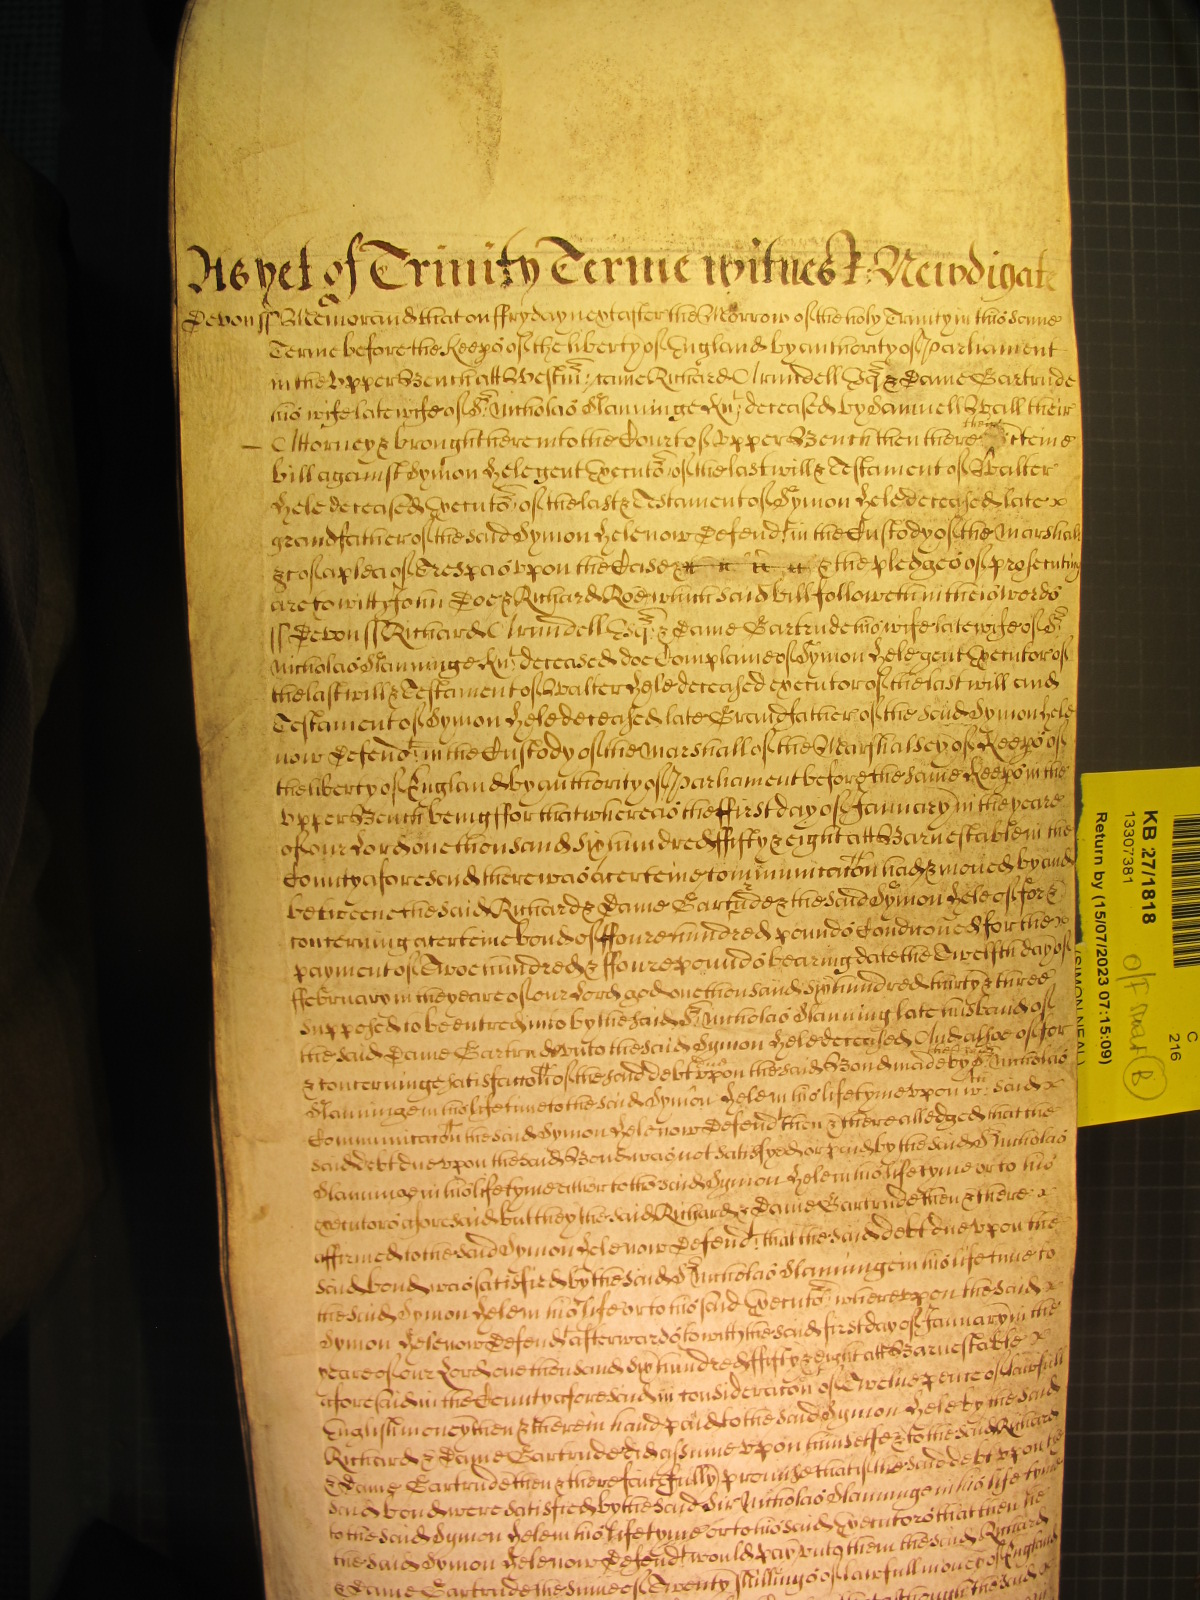 As yet of Trinity Terme witnes R: Newdigate
Devon ss Memorand that on ffryday next after the Morrow of the holy Trinity in this same
Terme before the Keeps of the liberty of England by authority of Parliament
in the Upper Bench att Westm: came Richard Arundell Esq & Dame Gartrude
his wife late wife of Sr Nicholas Slanninge Knt deceased by Samuell Wall their
Attorney & brought here into the Court of Upper Bench then there their certeine
bill against Symon Hele gent Executor of the last will & Testament of Walter
Hele deceased Executor of the last & Testament of Symon Hele deceased late
grandfather of the said Symon Hele now Defendt in the Custody of the Marshall
&c of a plea of Trespas upon the Case & the pledges of prosecuting
are to witt John Doe & Richard Roe which said bill followeth in theis words
ss Devon ss Richard Arundell Esq & Dame Gartrude his wife late wife of Sr
Nicholas Slanninge Knt deceased doe Complaine of Symon Hele gent Executor of
the last will & Testament of Walter Hele deceased executor of the last will and
Testament of Symon Hele deceased late Grandfather of the said Symon Hele
now Defendt in the Custody of the Marshall of the Marshalsey of Keeps of
the liberty of England by authority of Parliament before the same Keeps in the
Upper Bench being ffor that whereas the ffirst day of January in the yeare
of our Lord one thousand six hundred ffifty & eight att Barnestable in the
County aforesaid there was a certeine communicacon had & moved by and
betweene the said Richard & Dame Gartrude & the said Symon Hele of for &
concerning a certeine bond of ffoure hundred pounds Condiconed for the
payment of Twoe hundred & ffoure pounds bearing date the Twelfth day of
ffebruary in the yeare of our Lord god one thousand six hundred thirty & three
supposed to be entred into by the said Sr Nicholas Slanning late husband of
the said Dame Gartrude unto the said Symon Hele deceased And alsoe of for
& concerninge satisfaccon of the said debt due upon the said Bond made by the said Sr Nicholas
Slanninge in his life time to the said Symon Hele in his life tyme upon wch said
Communicacon the said Symon Hele now Defendt then & there alledged that the
said debt due upon the said Bond was not satisfyed or paid by the said Sr Nicholas
Slanninge in his life tyme either to the said Symon Hele in his life tyme or to his
executors aforesaid but they the said Richard & Dame Gartrude then & there
affirmed to the said Symon Hele now Defendt that the said debt due upon the
said bond was satisfied by the said Sr Nicholas Slanninge in his life time to
the said Symon Hele in his life or to his said Executor whereupon the said
Symon Hele now Defendt afterwards to witt the said first day of January in the
yeare of our Lord one thousand six hundred ffifty & eight att Barnestable
aforesaid in the County aforesaid in consideracon of Twelve pence of lawfull
English money then & there in hand paid to the said Symon Hele by the said
Richard & Dame Gartrude did assume upon himselfe & to the said Richard
& Dame Gartrude then & there faithfully promise that if the said debt upon the
said bond were satisfied by the said Sir Nicholas Slanninge in his life tyme
to the said Symon Hele in his life tyme or to his said Executors that then he
the said Symon Hele now Defendt would pay unto them the said Richard
& Dame Gartrude the summe of Twenty Shillings of lawfull money of England
KB 27/1818
13307381
Return by (15/07/2023 07:15:09)
C
216
(SIMON NEAL)